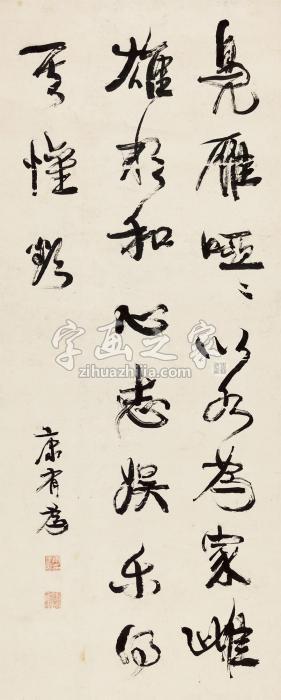 鳧雁啞〻以水為家雌
雄相和心志娛樂得
其懽欲
康有為
字画之家
zihuazhijia.com